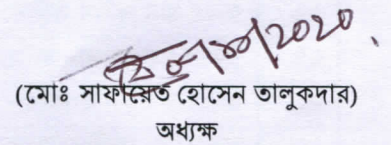 (মোঃ সাফায়েত হোসেন তালুকদার)
অধ্যক্ষ